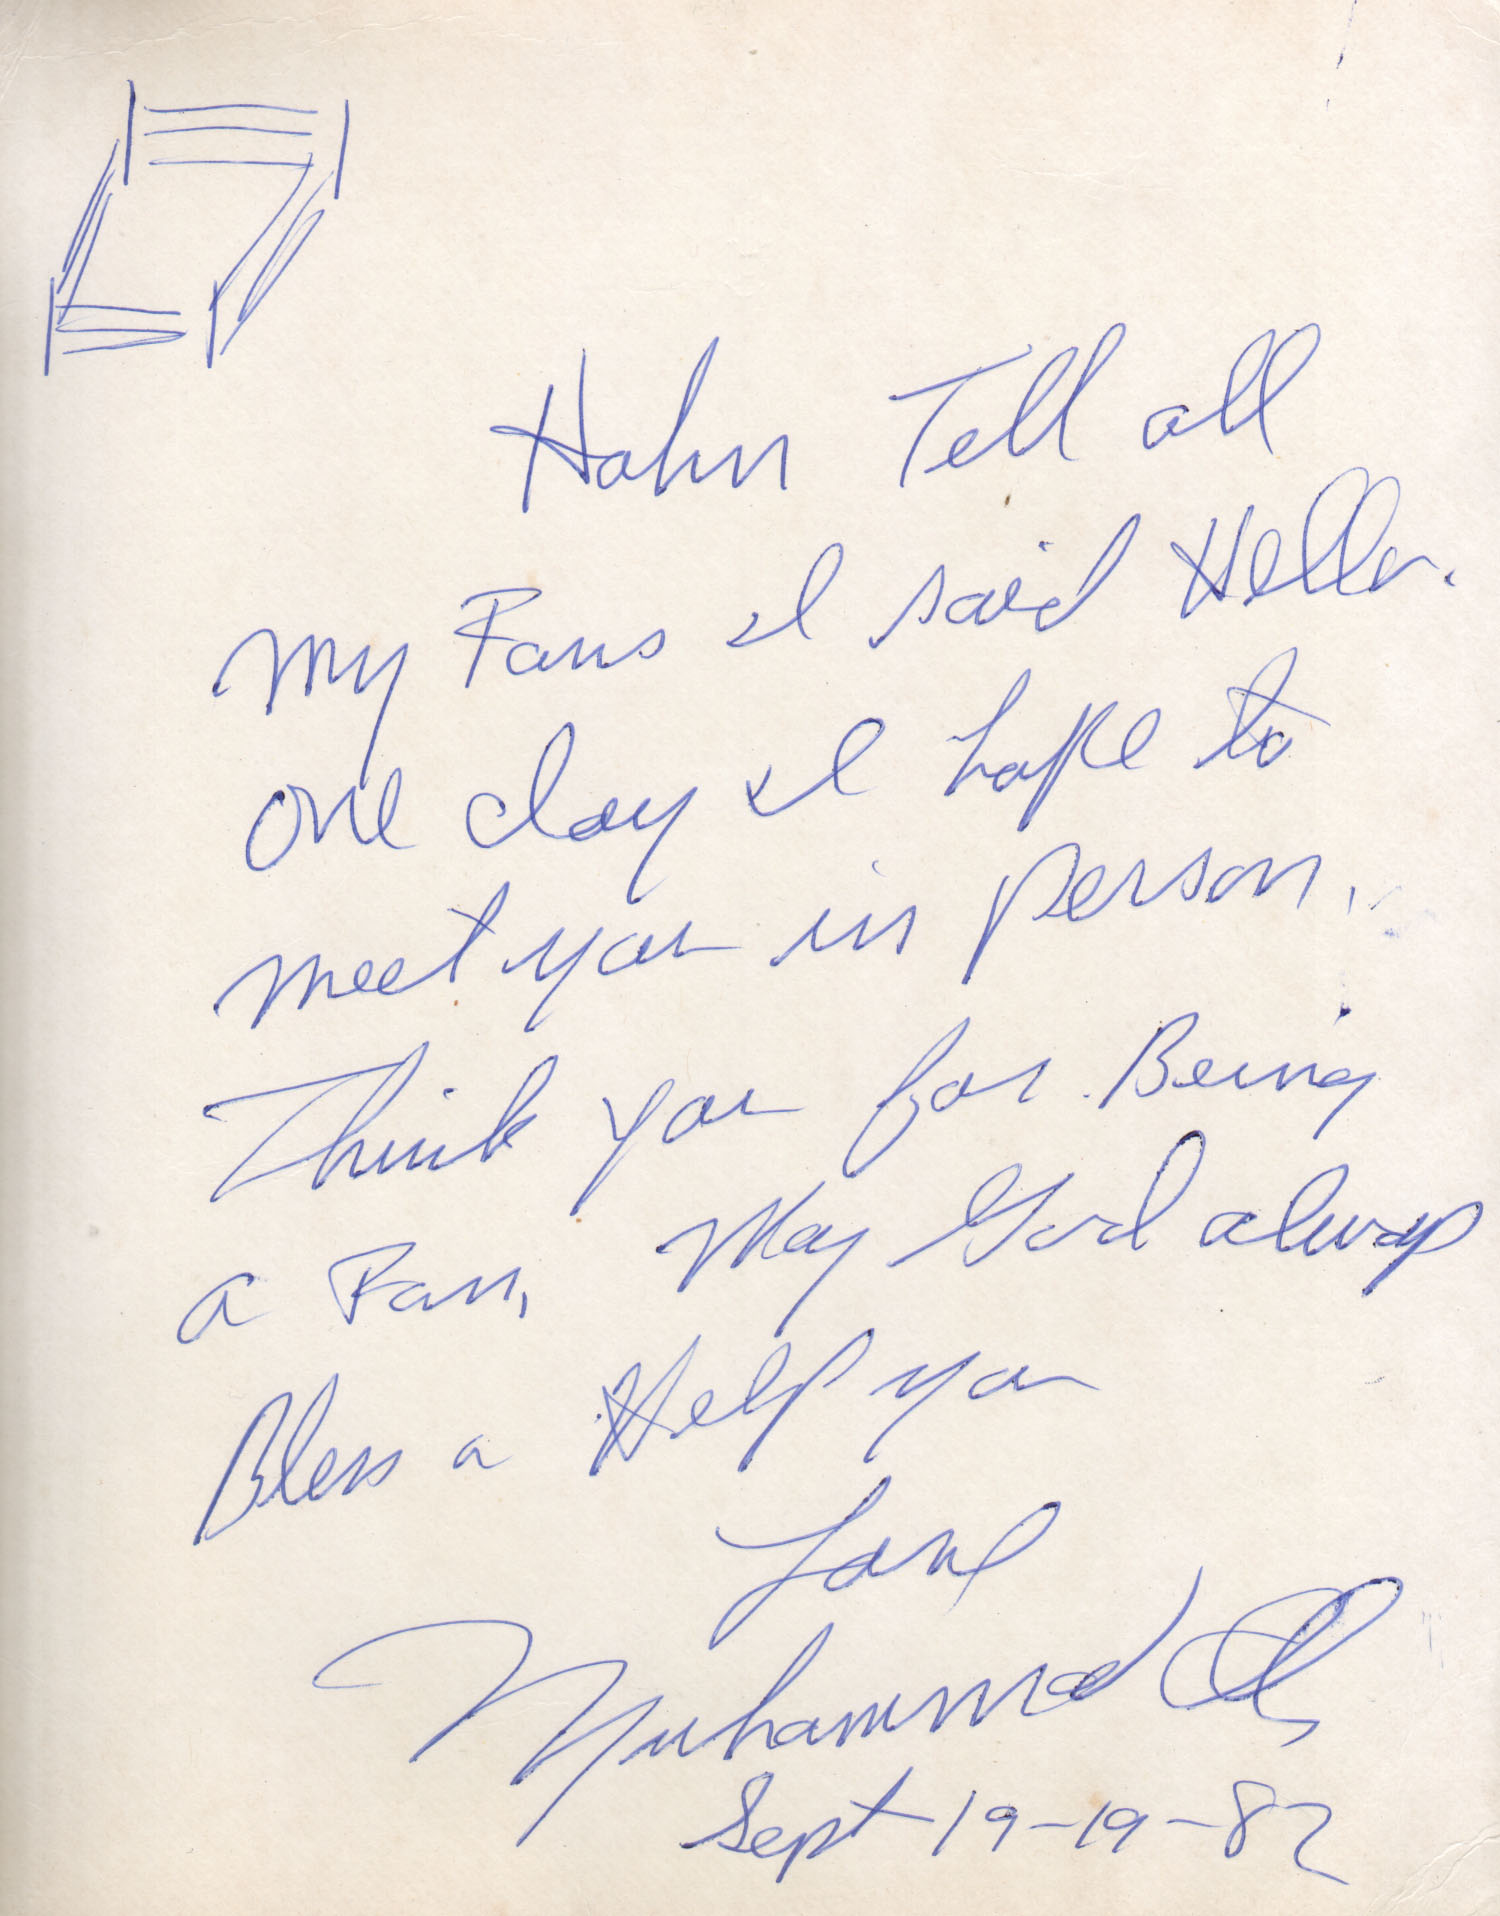 Hahn Tell all
my Fans I said Hello.
one day I hope to
meet you in person.
Think you for Being
a Fan, May God always
Bless a Help you
Love
Muhammad Ali
Sept 19-19-82